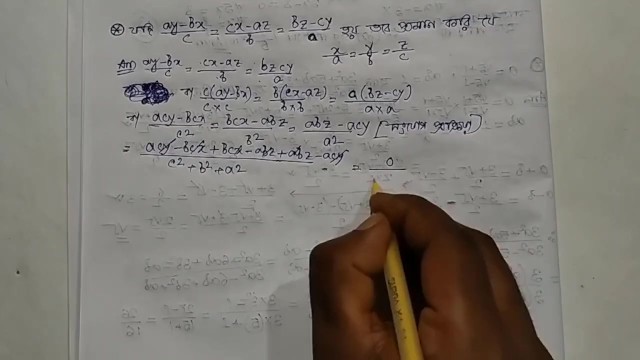 * যদি (ay-bx)/c = (cx-az)/b = (bz-cy)/a হয় তবে প্রমাণ করি যে
x/a = y/b = z/c
Ans) (ay-bx)/c = (cx-az)/b = (bz-cy)/a
বা c(ay-bx)/(c×c) = b(cx-az)/(b×b) = a(bz-cy)/(a×a)
বা (acy-bcx)/c² = (bcx-abz)/b² = (abz-acy)/a² [সংযোজন প্রক্রিয়া]
= (acy-bcx+bcx-abz+abz-acy)/(c²+b²+a²) = 0